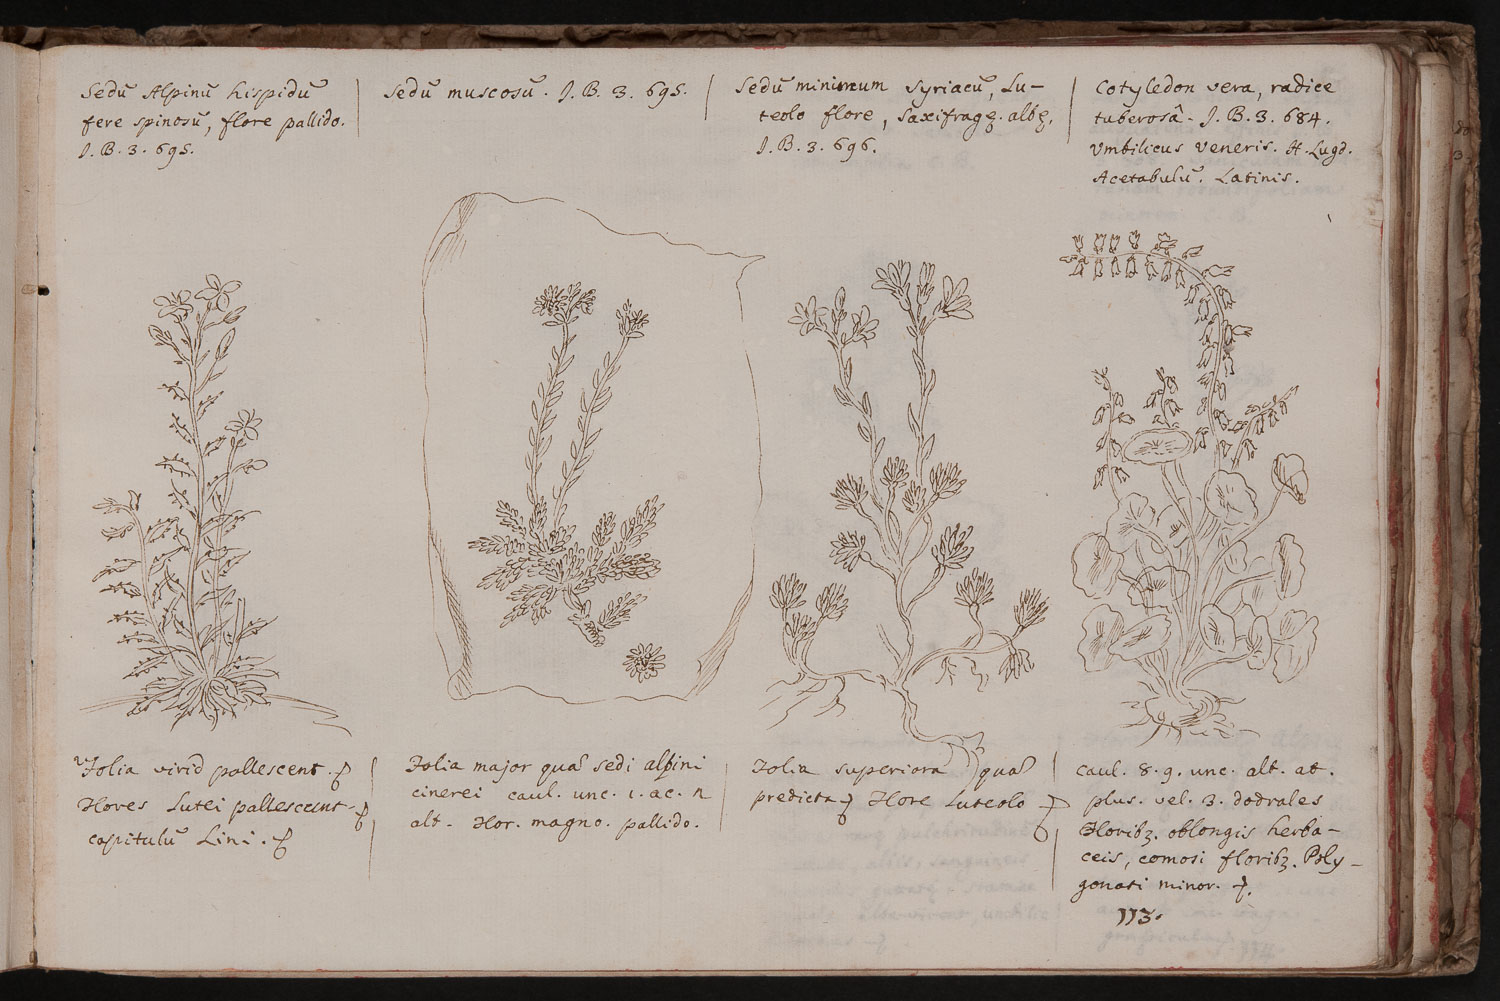 Sedū Alpinū hispidū
fere spinosū, flore pallido.
J. B. 3. 695.
Sedū muscosū. J. B. 3. 695.
Sedū minimum Syriacū, Lu-
teolo flore, Saxifrag ʒ. alb ʒ.
J. B. 3. 696.
Cotyledon vera, radice
tuberosâ. J. B. 3. 684.
Vmbilicus veneris. H. Lugd.
Acetabulū. Latinis.
Folia virid pallescent.
Flores Lutei pallescent.
capitulū Lini.
Folia major quā sedi alpini
cinerei caul. unc. 1. ac.
alt. Flor. magno. pallido.
Folia superiora quā
predicta Flore Luteolo
Caul. 8. 9. unc. alt. at.
plus. vel. 3. dodrales
Floribʒ. oblongis herba-
ceis, comosi floribʒ. Poly-
gonati minor.
113.